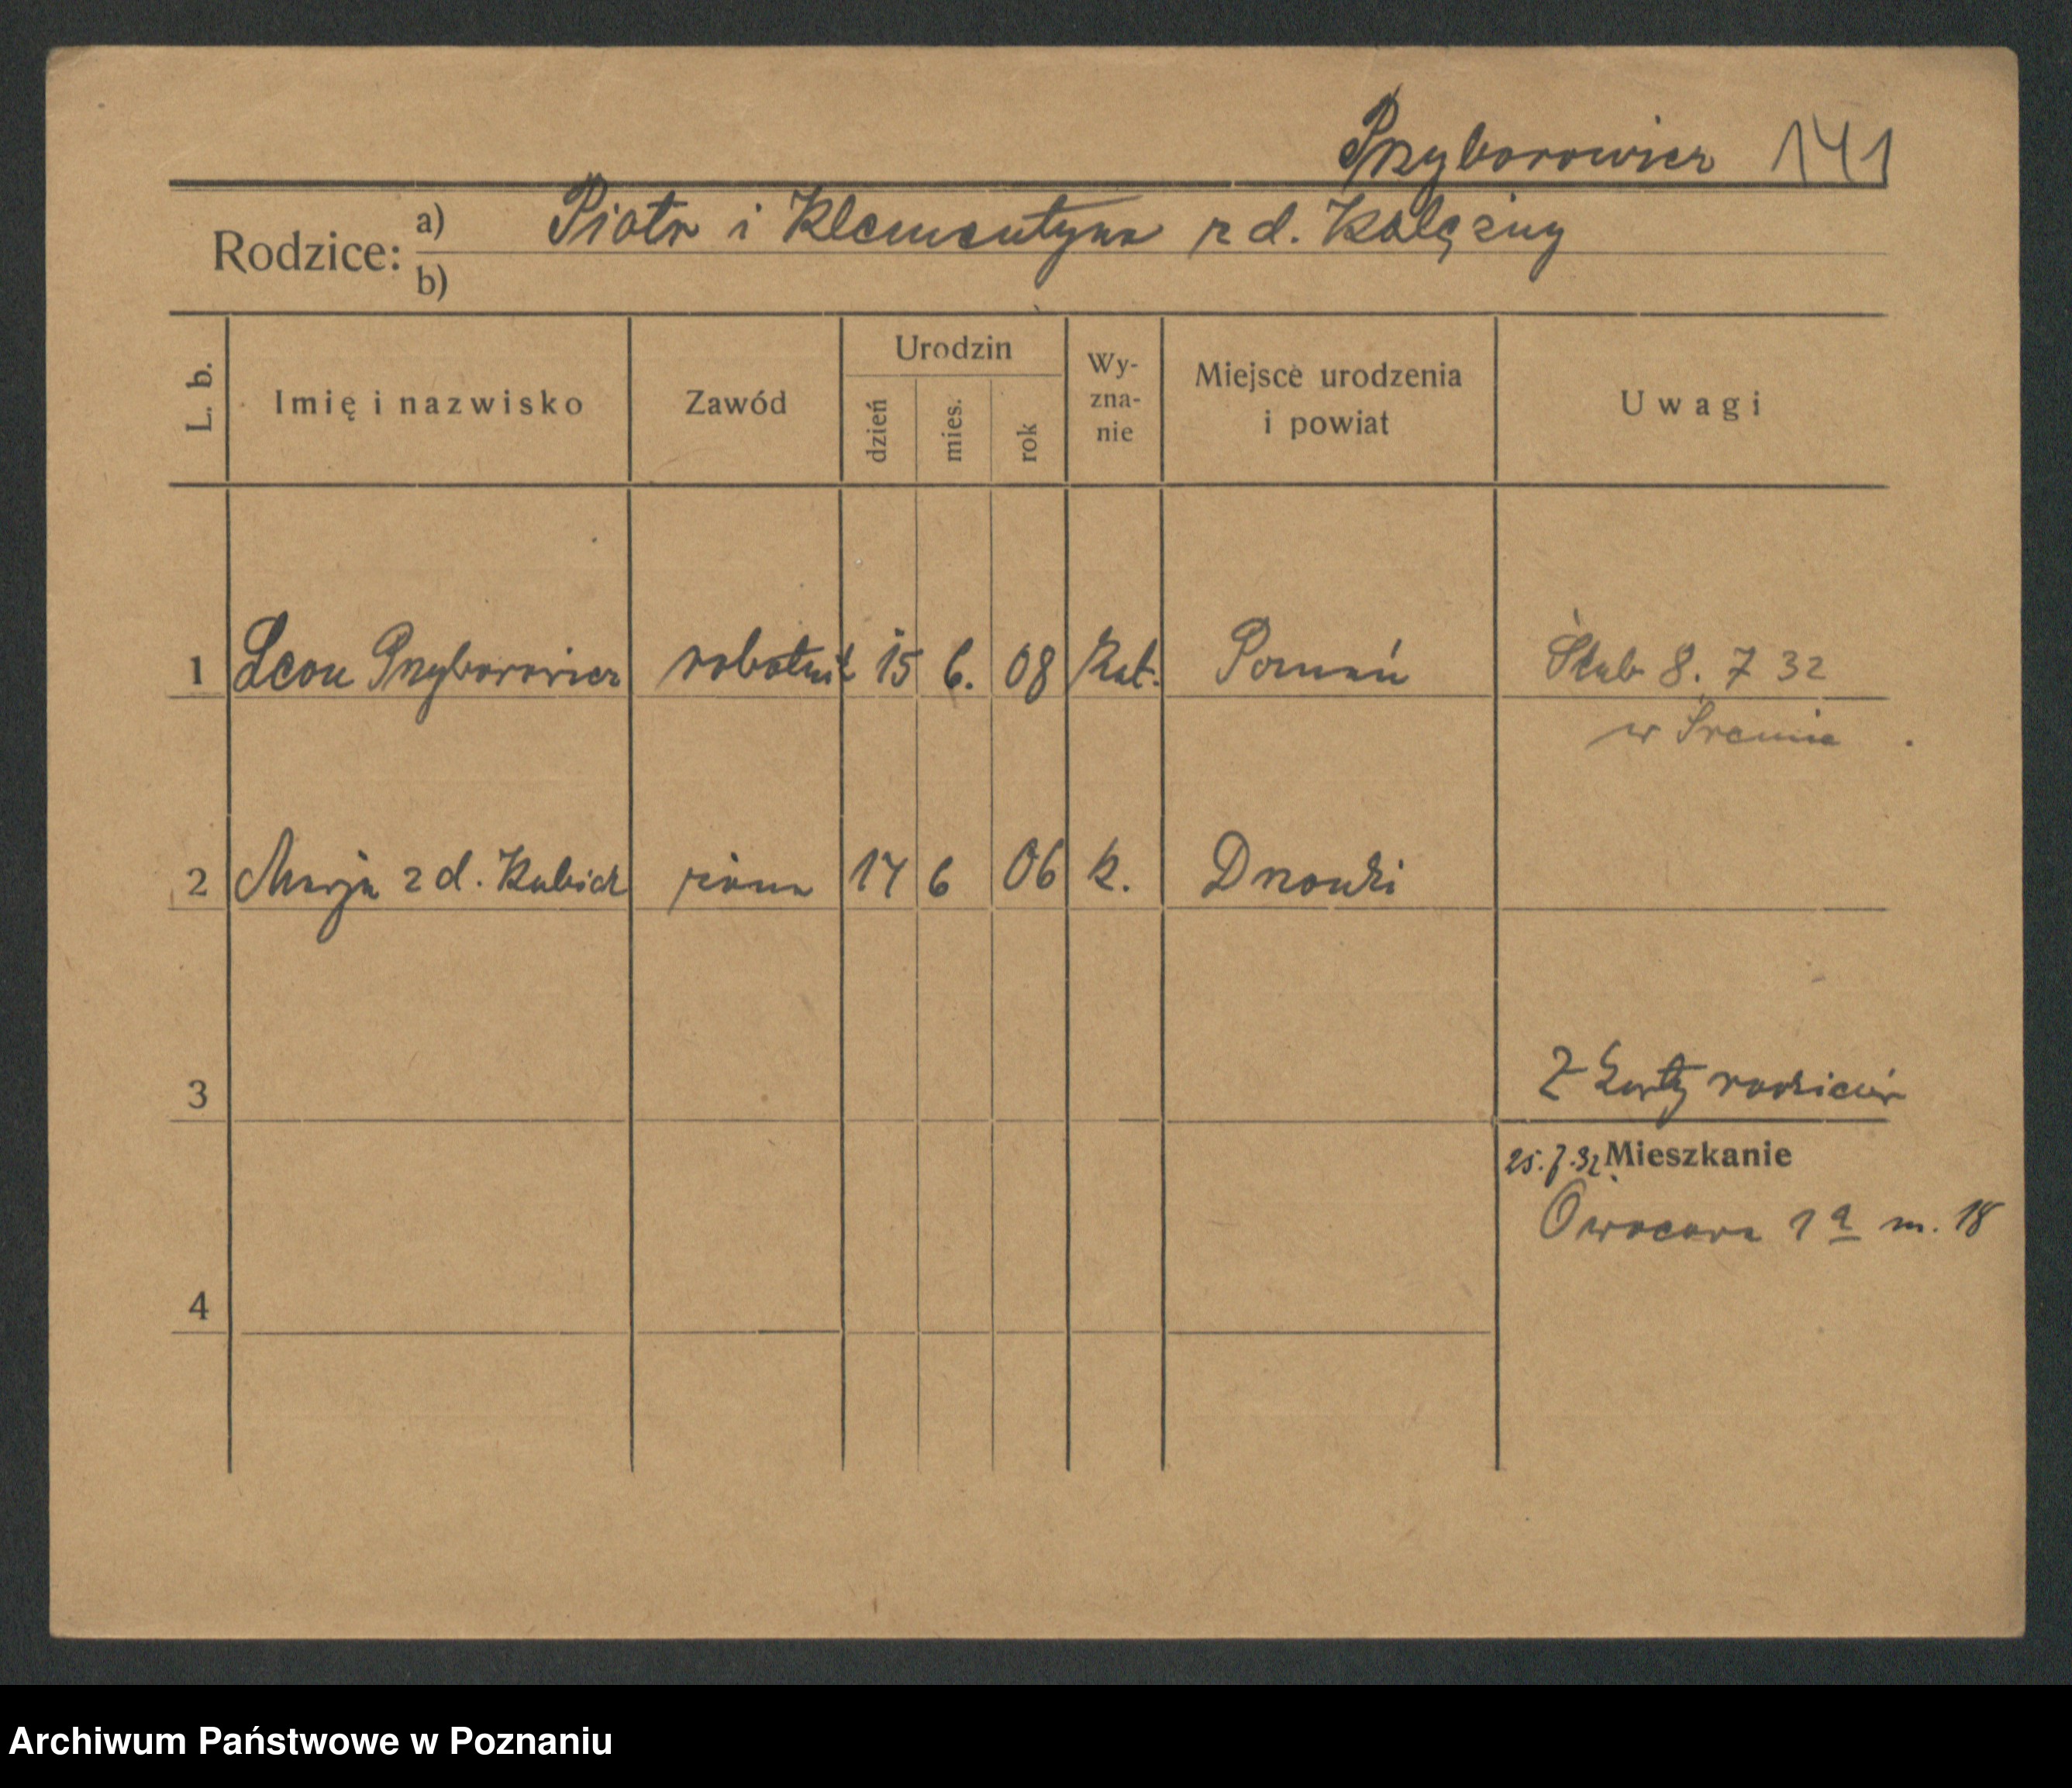 Przyborowicz 141
Rodzice: a) Piotr i Klementyna z d. Kolężny
b)
L. b. Imię i nazwisko Zawód Urodzin dzień mies. rok Wyznanie Miejsce urodzenia i powiat Uwagi
1 Leon Przyborowicz robotnik 15 6. 08 Kat. Poznań Ślub 8. 7 32
w Śremie
2 Marja z d. Kubiak żona 14 6 06 k.
3 Z karty rodziców
25.7.32 Mieszkanie
Owocowa 1a m. 18
4
Archiwum Państwowe w Poznaniu